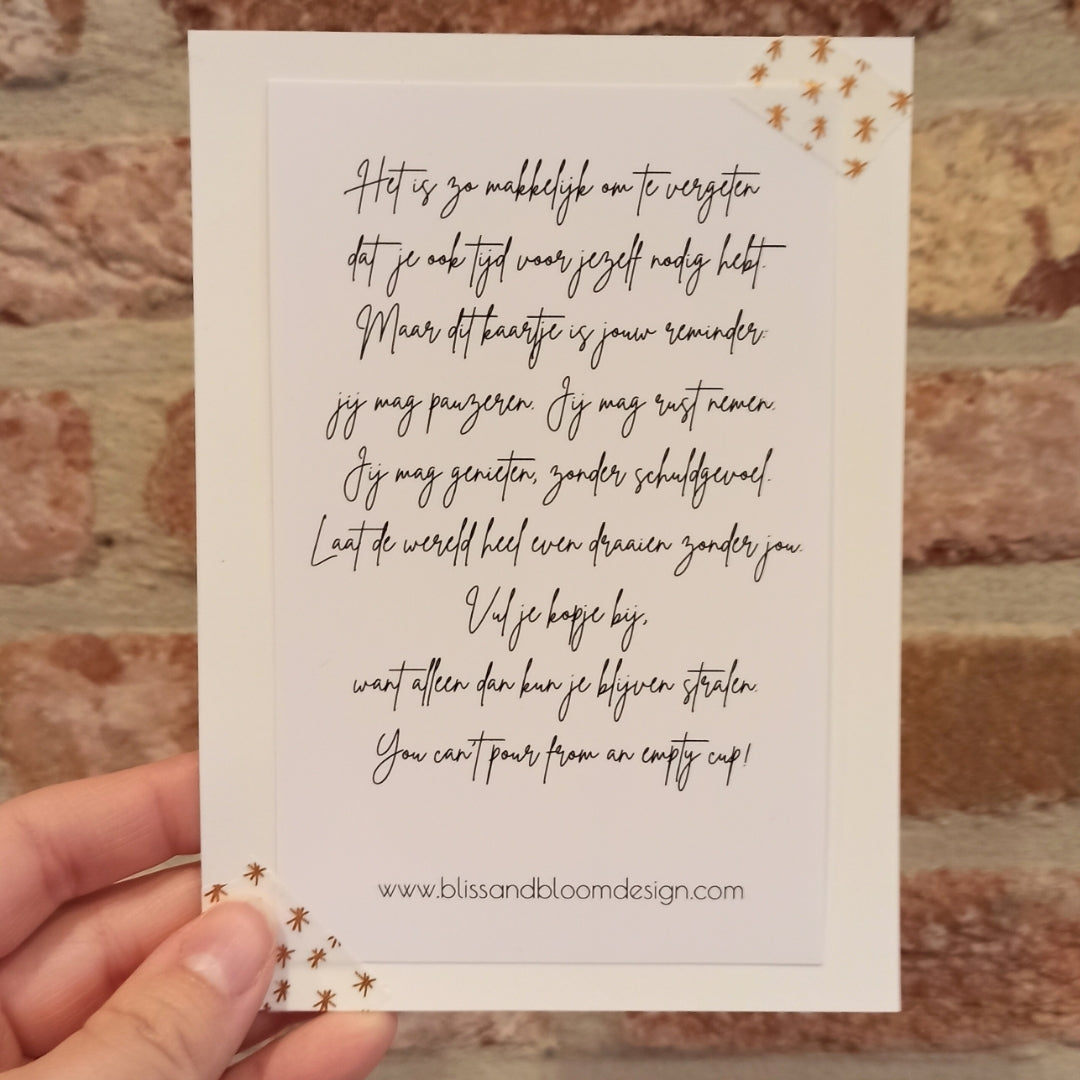 Het is zo makkelijk om te vergeten
dat je ook tijd voor jezelf nodig hebt.
Maar dit kaartje is jouw reminder:
jij mag pauzeren. Jij mag rust nemen.
Jij mag genieten, zonder schuldgevoel.
Laat de wereld heel even draaien zonder jou.
Vul je kopje bij,
want alleen dan kun je blijven stralen.
You can't pour from an empty cup!
www.blissandbloomdesign.com